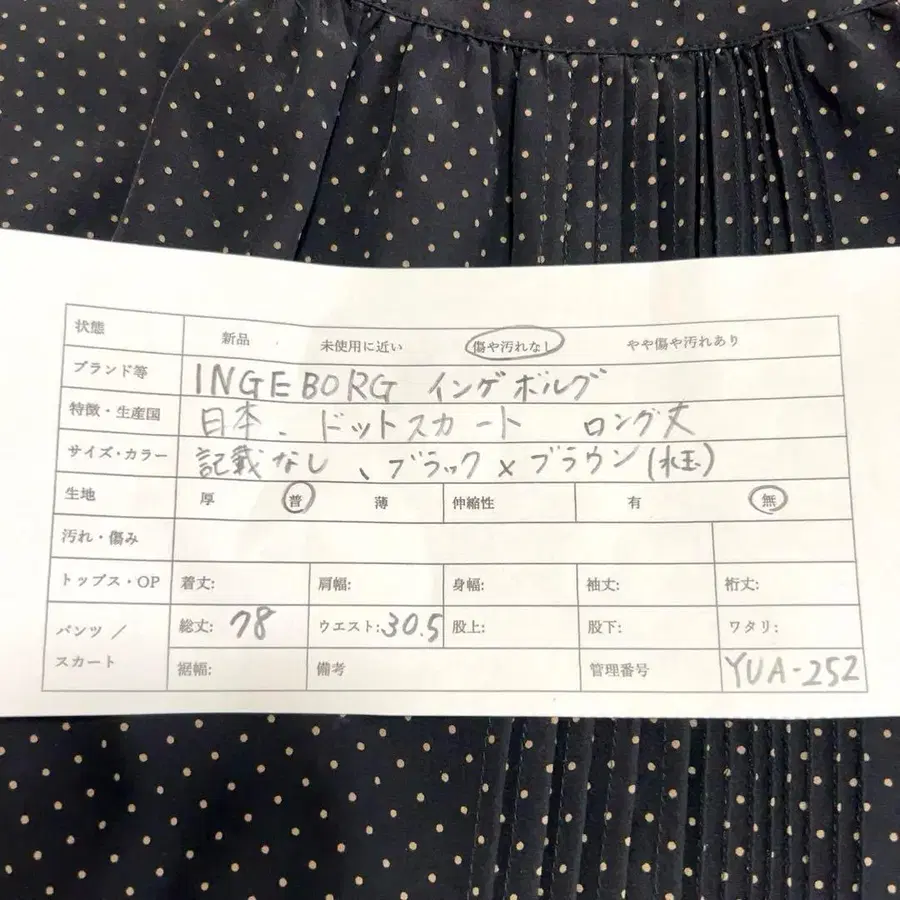 状態 新品 未使用に近い 傷や汚れなし やや傷や汚れあり
ブランド等 INGEBORG インゲボルグ
特徴・生産国 日本、ドットスカート ロング丈
サイズ・カラー 記載なし、ブラック×ブラウン(水玉)
生地 厚 普 薄 伸縮性 有 無
汚れ・傷み
トップス・OP 着丈: 肩幅: 身幅: 袖丈: 裄丈:
パンツ / スカート 総丈: 78 ウエスト: 30.5 股上: 股下: ワタリ:
裾幅: 備考 管理番号 YUA-252